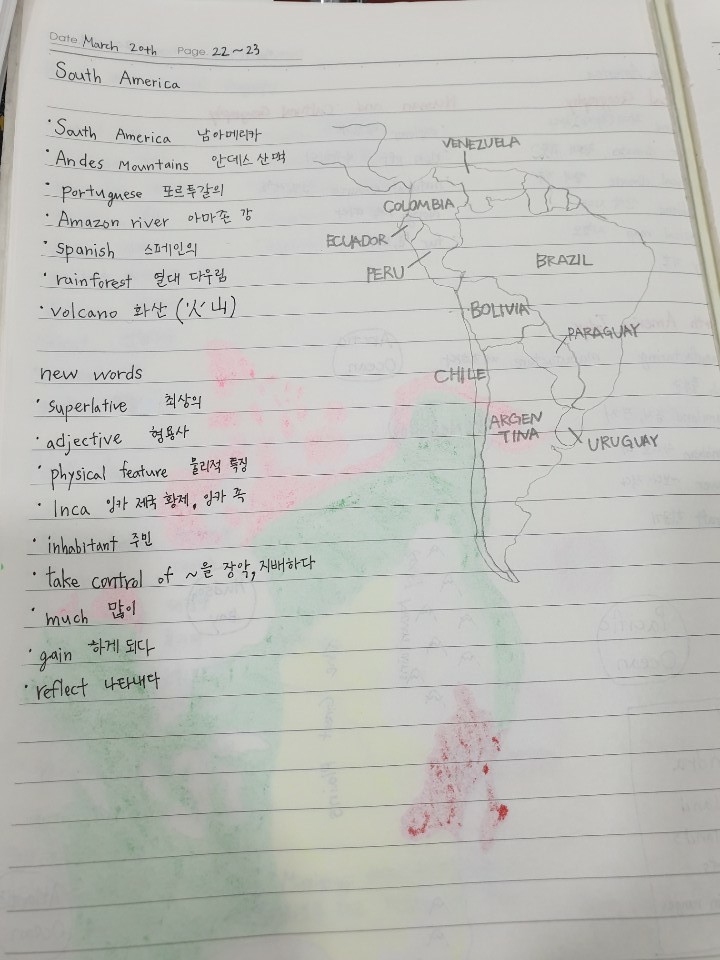 Date March 20th Page 22~23
South America
· South America 남아메리카
· Andes Mountains 안데스 산맥
· portuguese 포르투갈의
· Amazon river 아마존 강
· spanish 스페인의
· rainforest 열대 다우림
· volcano 화산 (火山)
new words
· superlative 최상의
· adjective 형용사
· physical feature 물리적 특징
· Inca 잉카 제국 황제, 잉카 족
· inhabitant 주민
· take control of ~을 장악, 지배하다
· much 많이
· gain 하게 되다
· reflect 나타내다
VENEZUELA
COLOMBIA
ECUADOR
PERU
BRAZIL
BOLIVIA
PARAGUAY
CHILE
ARGEN
TINA
URUGUAY